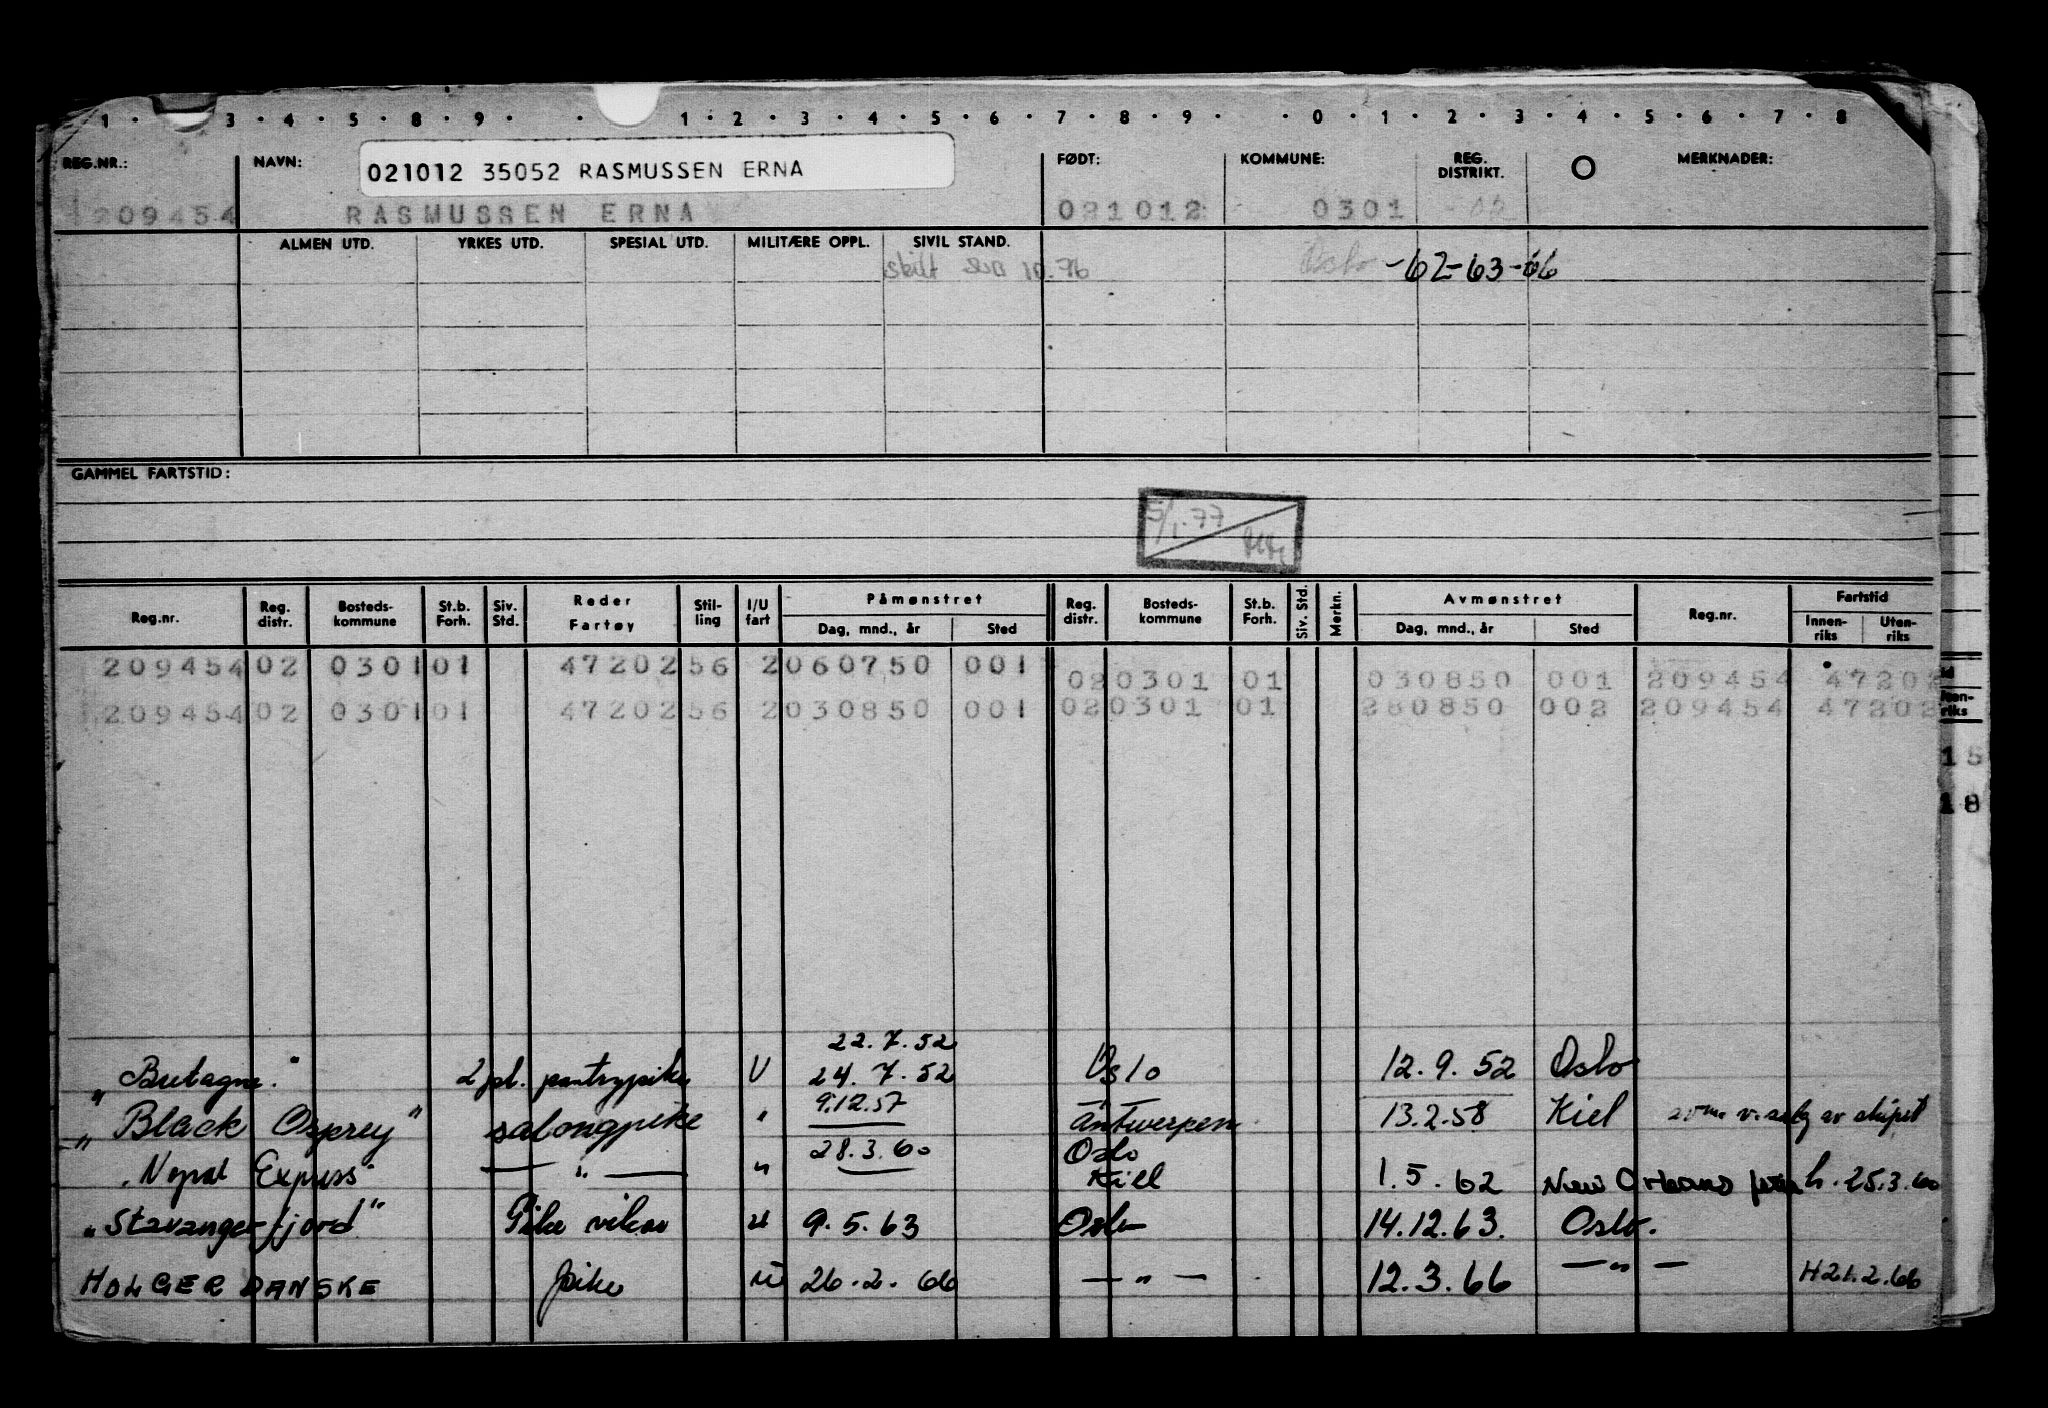 1 · 3 · 4 · 5 · 8 · 9 · · 1 · 2 · 3 · 4 · 5 · 6 · 7 · 8 · 9 · · 0 · 1 · 2 · 3 · 4 · 5 · 6 · 7 · 8
REG.NR.: NAVN: 021012 35052 RASMUSSEN ERNA FØDT: KOMMUNE: REG. DISTRIKT. O MERKNADER:
209454 RASMUSSEN ERNA 021012 0301 02
ALMEN UTD. YRKES UTD. SPESIAL UTD. MILITÆRE OPPL. SIVIL STAND.
skilt 10.76 Oslo -62-63-66
GAMMEL FARTSTID:
5/1.77
Reg.nr. Reg. distr. Bosteds-kommune St.b. Forh. Siv. Std. Reder Fartøy Stil-ling I/U fart Påmønstret Dag, mnd., år Sted Reg. distr. Bosteds-kommune St.b. Forh. Siv. Std. Merkn. Avmønstret Dag, mnd., år Sted Reg.nr. Fartstid Innen-riks Uten-riks
209454 02 0301 01 47202 56 2 060750 001 02 0301 01 030850 001 209454 47202
209454 02 0301 01 47202 56 2 030850 001 02 0301 01 280850 002 209454 47202
riks
15
18
22.7.52
"Bretagne." 2 pl. pantrypike U 24.7.52 Oslo 12.9.52 Oslo
"Black Osprey" salongpike " 9.12.57 Antwerpen 13.2.58 Kiel v. salg av skipet
28.3.60 Oslo
"Nopal Express" — " — " Kiel 1.5.62 New Orleans h. 25.3.60
"Stavangerfjord" Pike vikar u 9.5.63 Oslo 14.12.63. Oslo.
HOLGER DANSKE pike u 26.2.66 — " — 12.3.66 — " — H21.2.66